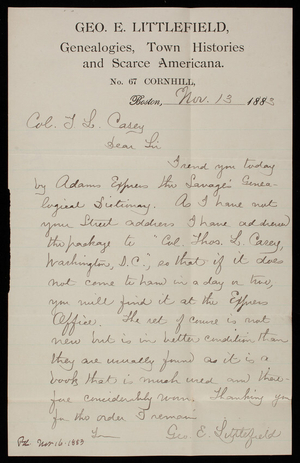 GEO. E. LITTLEFIELD,
Genealogies, Town Histories
and Scarce Americana.
No. 67 CORNHILL,
Boston, Nov. 13 1883
Col. T. L. Casey
Dear Sir
I send you today
by Adams Express the Savage's Genea-
logical Dictionary. As I have not
your Street address I have addressed
the package to "Col. Thos. L. Casey,
Washington, D.C.", so that if it does
not come to hand in a day or two,
you will find it at the Express
Office. The set of course is not
new but is in better condition than
they are usually found as it is a
book that is much used and there-
fore considerably worn. Thanking you
for the order I remain
Geo E. Littlefield
Nov. 16. 1883